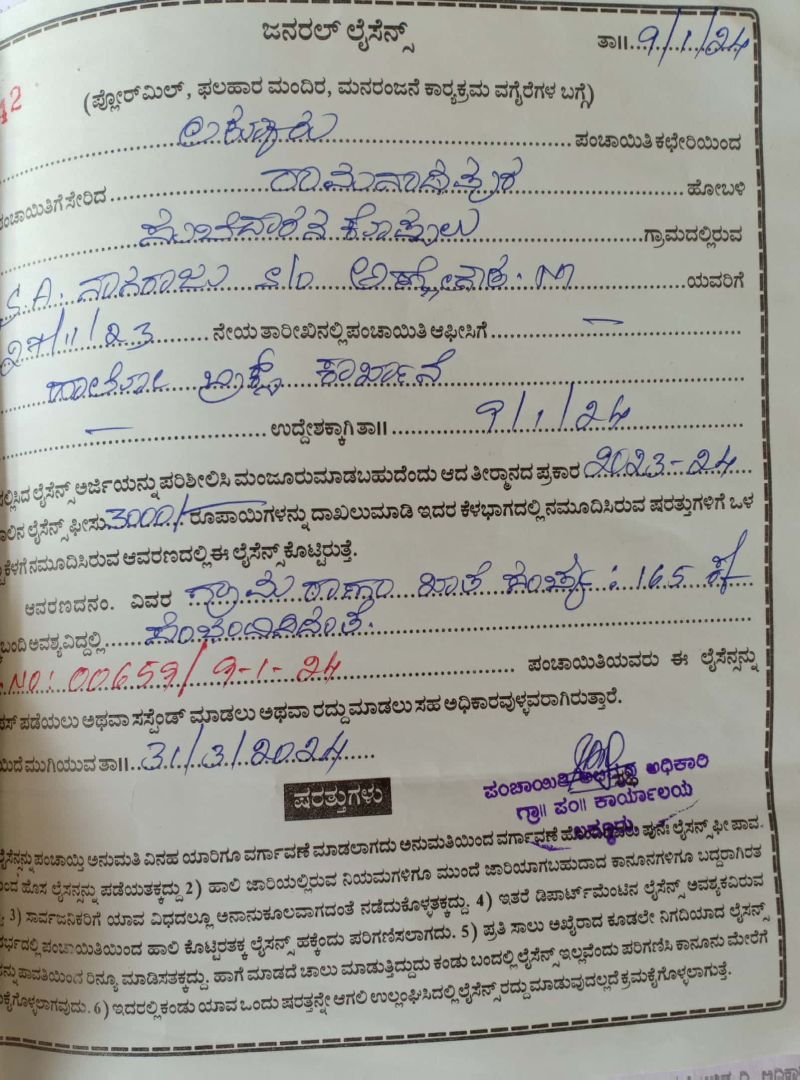 ಜನರಲ್ ಲೈಸೆನ್ಸ್
ತಾ॥ 9/1/24
42
(ಫ್ಲೋರ್‌ಮಿಲ್, ಫಲಹಾರ ಮಂದಿರ, ಮನರಂಜನೆ ಕಾರ್‍ಯಕ್ರಮ ವಗೈರೆಗಳ ಬಗ್ಗೆ)
ಪಂಚಾಯಿತಿ ಕಛೇರಿಯಿಂದ
ಪಂಚಾಯಿತಿಗೆ ಸೇರಿದ ಹೋಬಳಿ
ಕೊಪ್ಪಲು ಗ್ರಾಮದಲ್ಲಿರುವ
S.A. ನಾಗರಾಜು s/o ಯವರಿಗೆ
27/11/23 ನೇಯ ತಾರೀಖಿನಲ್ಲಿ ಪಂಚಾಯಿತಿ ಆಫೀಸಿಗೆ —
ಹಾಲೋ ಬ್ರಿಕ್ಸ್ ಕಾರ್ಖಾನೆ
— ಉದ್ದೇಶಕ್ಕಾಗಿ ತಾ॥ 9/1/24
ಸಲ್ಲಿಸಿದ ಲೈಸೆನ್ಸ್ ಅರ್ಜಿಯನ್ನು ಪರಿಶೀಲಿಸಿ ಮಂಜೂರುಮಾಡಬಹುದೆಂದು ಆದ ತೀರ್ಮಾನದ ಪ್ರಕಾರ 2023-24
ಸಾಲಿನ ಲೈಸೆನ್ಸ್ ಫೀಸು 3000/- ರೂಪಾಯಿಗಳನ್ನು ದಾಖಲುಮಾಡಿ ಇದರ ಕೆಳಭಾಗದಲ್ಲಿ ನಮೂದಿಸಿರುವ ಷರತ್ತುಗಳಿಗೆ ಒಳ
ಕೆಳಗೆ ನಮೂದಿಸಿರುವ ಆವರಣದಲ್ಲಿ ಈ ಲೈಸೆನ್ಸ್ ಕೊಟ್ಟಿರುತ್ತೆ.
ಆವರಣದ ನಂ. ವಿವರ ಗ್ರಾಮ ಠಾಣಾ ಖಾತೆ ಸಂಖ್ಯೆ : 165
ಬಂದಿ ಅವಶ್ಯವಿದ್ದಲ್ಲಿ ಹೊಂದಿದಂತೆ.
NO: 00659/9-1-24 ಪಂಚಾಯಿತಿಯವರು ಈ ಲೈಸೆನ್ಸನ್ನು
ಪಡೆಯಲು ಅಥವಾ ಸಸ್ಪೆಂಡ್ ಮಾಡಲು ಅಥವಾ ರದ್ದುಮಾಡಲು ಸಹ ಅಧಿಕಾರವುಳ್ಳವರಾಗಿರುತ್ತಾರೆ.
ಮುಗಿಯುವ ತಾ॥ 31/3/2024
ಪಂಚಾಯಿತಿ ಅಭಿವೃದ್ಧಿ ಅಧಿಕಾರಿ
ಗ್ರಾ॥ ಪಂ॥ ಕಾರ್ಯಾಲಯ
ಷರತ್ತುಗಳು
ಲೈಸೆನ್ಸನ್ನು ಪಂಚಾಯ್ತಿ ಅನುಮತಿ ವಿನಹ ಯಾರಿಗೂ ವರ್ಗಾವಣೆ ಮಾಡಲಾಗದು ಅನುಮತಿಯಿಂದ ವರ್ಗಾವಣೆ ಹೊಂದಿದವರು ಪುನಃ ಲೈಸನ್ಸ್ ಫೀ ಪಾವ
ಹೊಸ ಲೈಸನ್ಸನ್ನು ಪಡೆಯತಕ್ಕದ್ದು 2) ಹಾಲಿ ಜಾರಿಯಲ್ಲಿರುವ ನಿಯಮಗಳಿಗೂ ಮುಂದೆ ಜಾರಿಯಾಗಬಹುದಾದ ಕಾನೂನಗಳಿಗೂ ಬದ್ದರಾಗಿರತ
3) ಸಾರ್ವಜನಿಕರಿಗೆ ಯಾವ ವಿಧದಲ್ಲೂ ಅನಾನುಕೂಲವಾಗದಂತೆ ನಡೆದುಕೊಳ್ಳತಕ್ಕದ್ದು. 4) ಇತರೆ ಡಿಪಾರ್ಟ್‌ಮೆಂಟಿನ ಲೈಸೆನ್ಸ್ ಅವಶ್ಯಕವಿರುವ
ರ್ಭದಲ್ಲಿ ಪಂಚಾಯಿತಿಯಿಂದ ಹಾಲಿ ಕೊಟ್ಟಿರತಕ್ಕ ಲೈಸನ್ಸ್ ಹಕ್ಕೆಂದು ಪರಿಗಣಿಸಲಾಗದು. 5) ಪ್ರತಿ ಸಾಲು ಅಖೈರಾದ ಕೂಡಲೇ ನಿಗದಿಯಾದ ಲೈಸನ್ಸ್
ಪಾವತಿಯಿಂದ ರಿನ್ಯೂ ಮಾಡಿಸತಕ್ಕದ್ದು. ಹಾಗೆ ಮಾಡದೆ ಚಾಲು ಮಾಡುತ್ತಿದ್ದುದು ಕಂಡು ಬಂದಲ್ಲಿ ಲೈಸೆನ್ಸ್ ಇಲ್ಲವೆಂದು ಪರಿಗಣಿಸಿ ಕಾನೂನು ಮೇರೆಗೆ
ಕೈಗೊಳ್ಳಲಾಗವುದು. 6) ಇದರಲ್ಲಿ ಕಂಡು ಯಾವ ಒಂದು ಷರತ್ತನ್ನೇ ಆಗಲಿ ಉಲ್ಲಂಘಿಸಿದಲ್ಲಿ ಲೈಸೆನ್ಸ್ ರದ್ದು ಮಾಡುವುದಲ್ಲದೆ ಕ್ರಮಕೈಗೊಳ್ಳಲಾಗುತ್ತೆ.